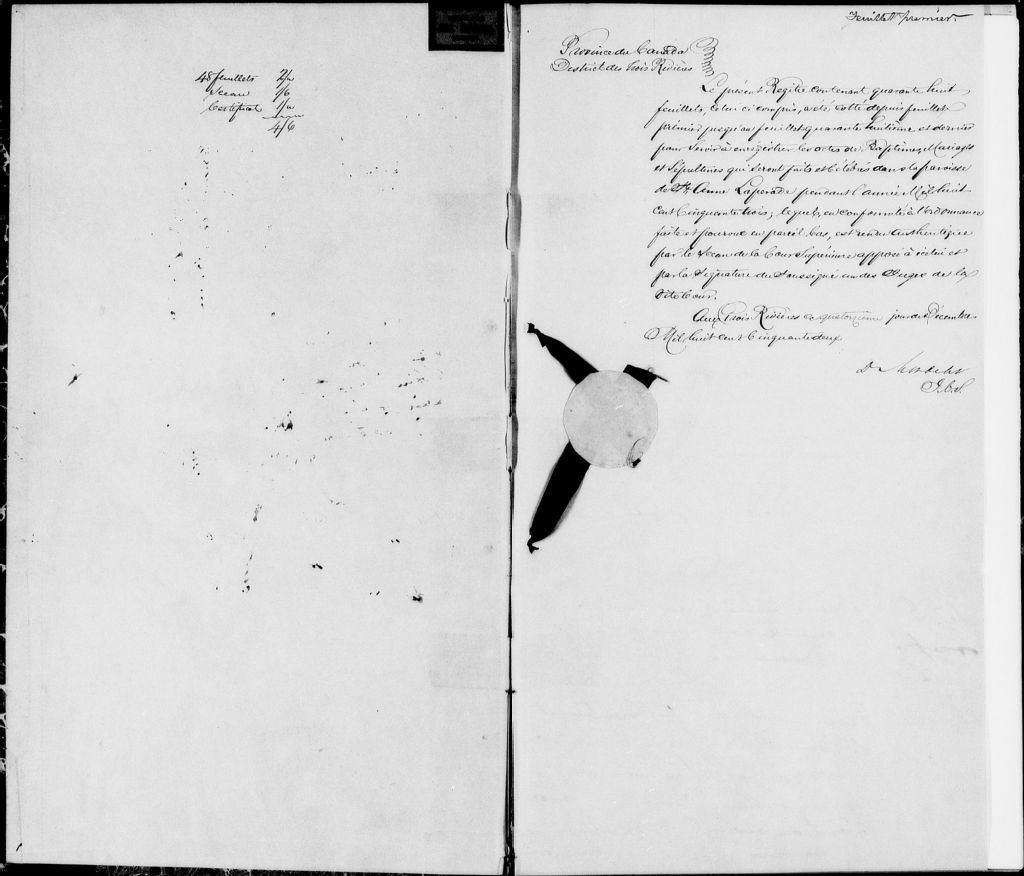 48 feuillets 2/u
Sceau 1/6
Certificat 1/u
4/6
Feuillet premier.
Province du Canada
District des trois Rivières
Le présent Regître contenant quarante huit
feuillets, celui ci compris, a été cotté depuis feuillet
premier jusqu'au feuillet quarante huitième et dernier
pour servir à enregîstrer les actes de Baptêmes, Mariages
et Sépultures qui seront faits et célébrés dans la paroisse
de Ste Anne Laperade pendant l'année Mil huit
cent Cinquante trois; lequel, en conformité à l'Ordonnance
faite et pourvue en pareil Cas, est rendu Authentique
par le Sceau de la Cour Supérieure apposé à icelui et
par la Signature du Soussigné un des Juges de la
dite Cour.
Aux Trois Rivières ce quatorzième jour de Décembre
Mil huit cent Cinquante deux
D.
J.C.S.